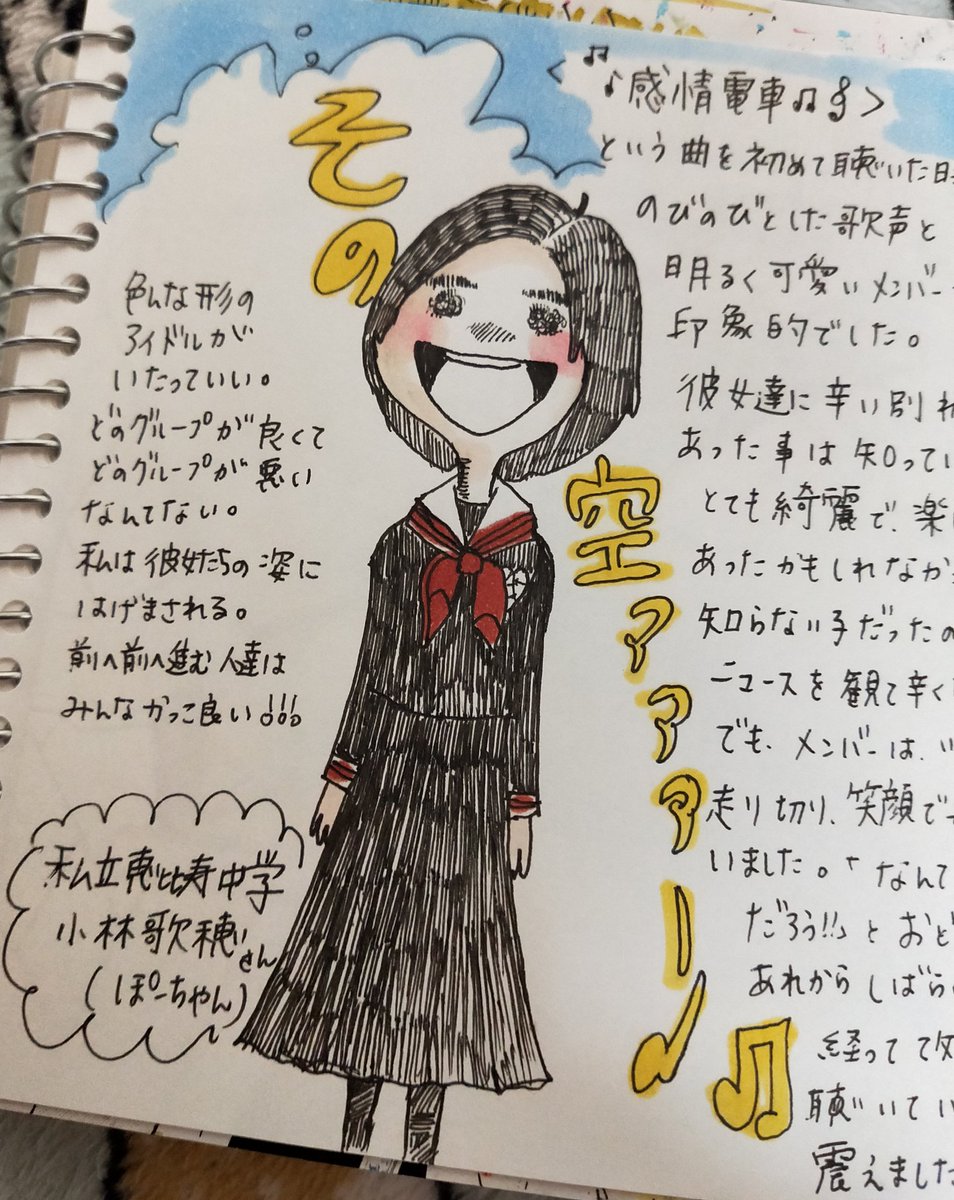 その
空ァァァー
色んな形の
アイドルが
いたっていい。
どのグループが良くて
どのグループが悪い
なんてない。
私は彼女たちの姿に
はげまされる。
前へ前へ進む人達は
みんなかっこ良い!!!
私立恵比寿中学
小林歌穂さん
(ぽーちゃん)
♪感情電車♫
という曲を初めて聴いた日
のびのびとした歌声と
明るく可愛いメンバー
印象的でした。
彼女達に辛い別れ
あった事は知ってい
とても綺麗で、楽
あったかもしれなか
知らない子だったの
ニュースを観て辛く
でも、メンバーは、
走り切り、笑顔で
いました。「なんて
だろう!!」とおど
あれからしばら
経って改
聴いてい
震えました